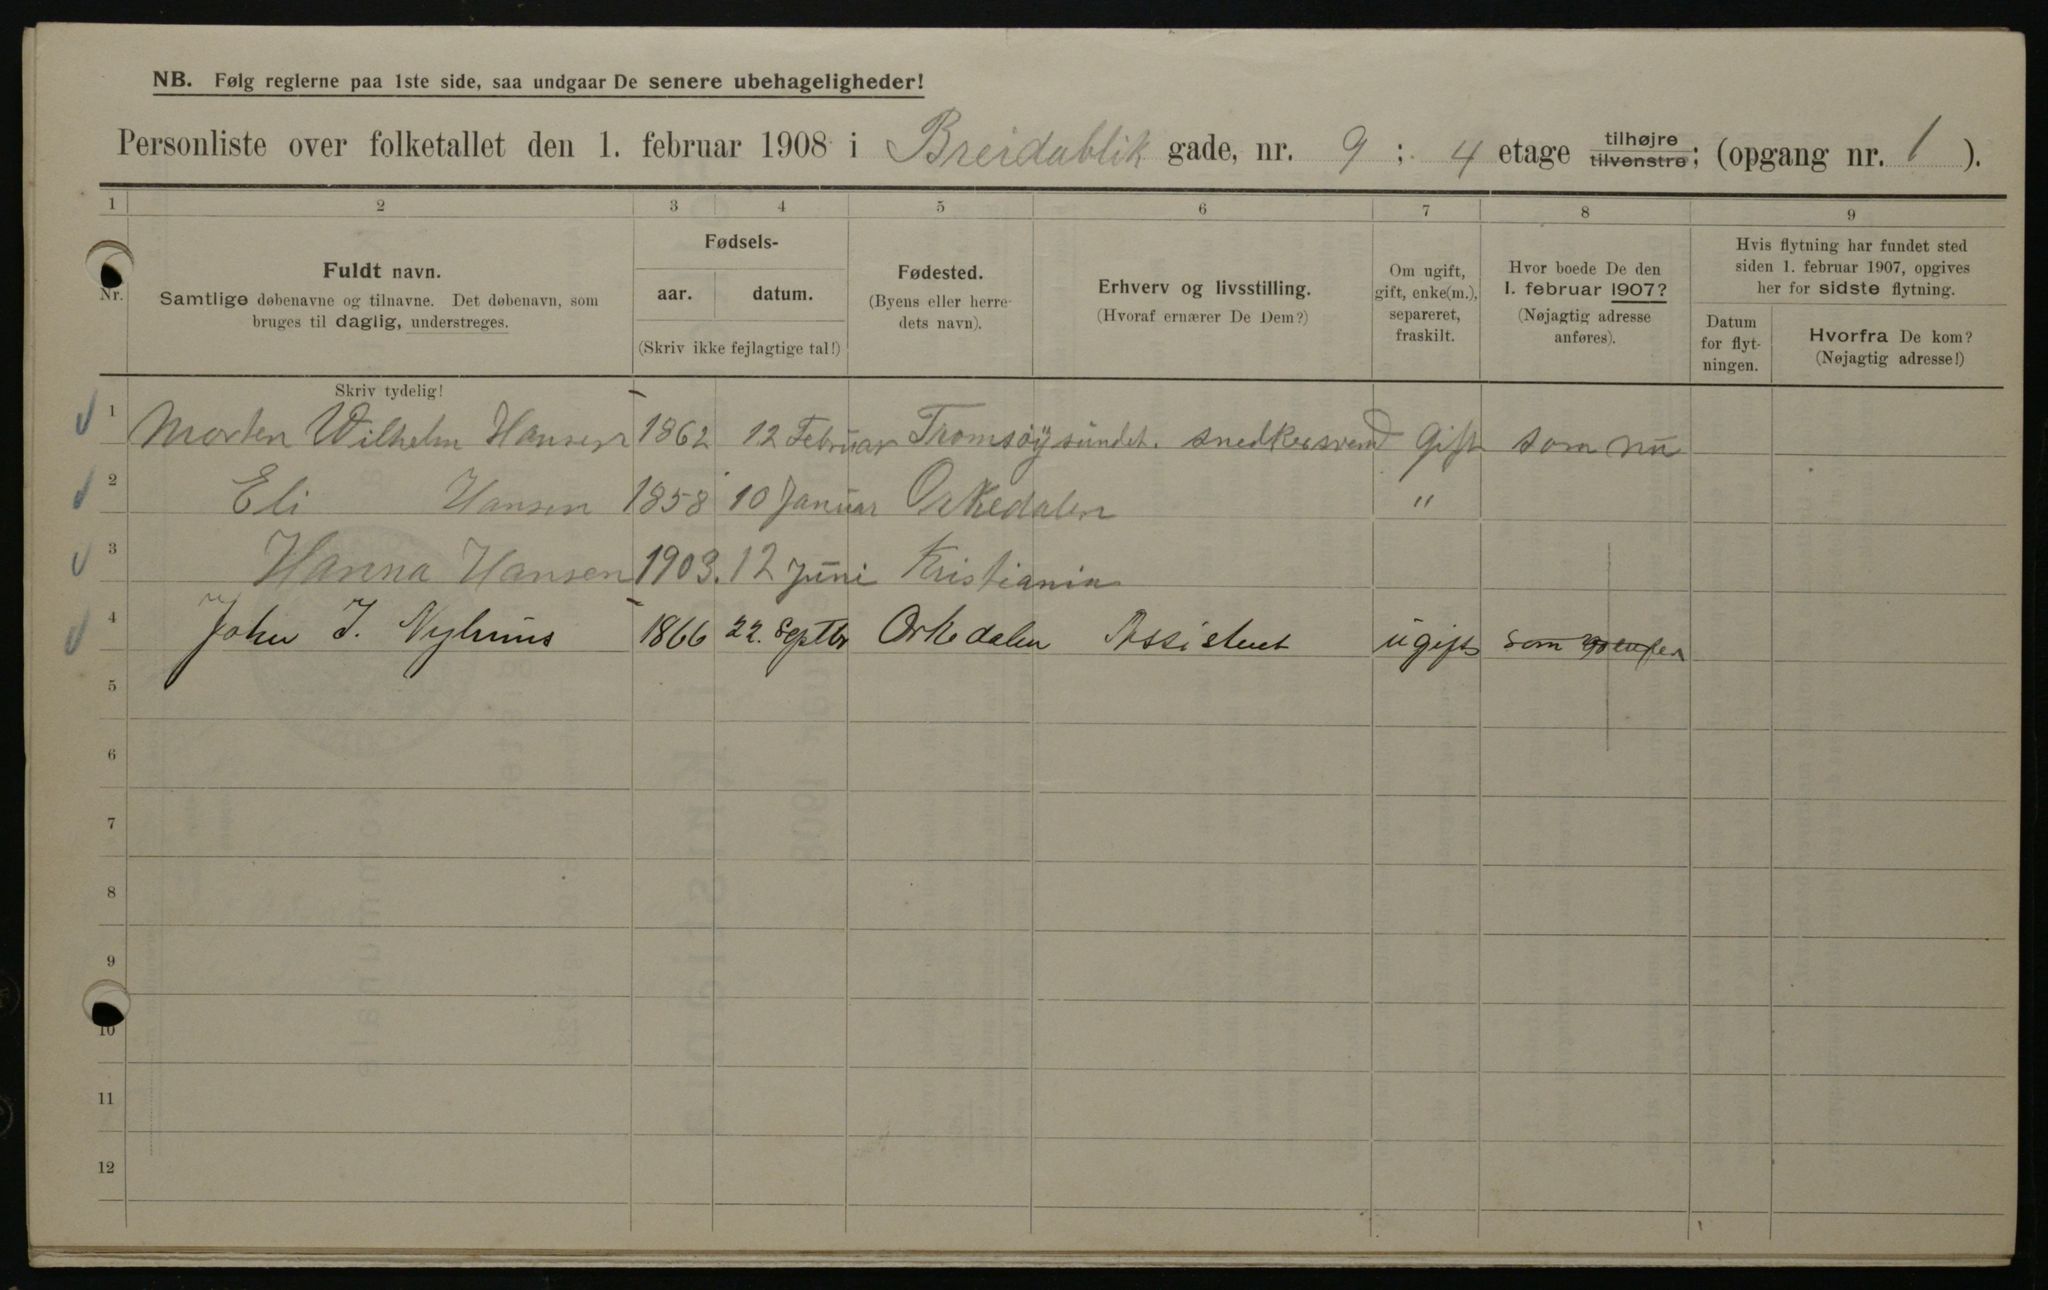 NB. Følg reglerne paa 1ste side, saa undgaar De senere ubehageligheder!
Personliste over folketallet den 1. februar 1908 i Breidablik gade, nr. 9 ; 4 etage tilhøjre tilvenstre; (opgang nr. 1 ).
1 2 3 4 5 6 7 8 9
Nr.
Fuldt navn.
Samtlige døbenavne og tilnavne. Det døbenavn, som
bruges til daglig, understreges.
Fødsels-
aar. datum.
(Skriv ikke fejlagtige tal!)
Fødested.
(Byens eller herre-
dets navn).
Erhverv og livsstilling.
(Hvoraf ernærer De Dem?)
Om ugift,
gift, enke(m.),
separeret,
fraskilt.
Hvor boede De den
1. februar 1907?
(Nøjagtig adresse
anføres).
Hvis flytning har fundet sted
siden 1. februar 1907, opgives
her for sidste flytning.
Datum
for flyt-
ningen.
Hvorfra De kom?
(Nøjagtig adresse!)
Skriv tydelig!
1 Morten Wilhelm Hansen 1862 12 Februar Tromsöysundet. snedkersvend Gift som nu
2 Eli Hansen 1858 10 Januar Orkedalen "
3 Hanna Hansen 1903. 12 Juni Kristiania
4 John J. Nyhuus 1866 22. Septbr Orkedalen Assistent ugift som
5
6
7
8
9
10
11
12